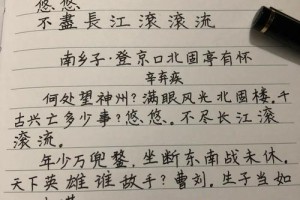 悠悠
不盡長江滾滾流
南乡子·登京口北固亭有怀
辛弃疾
何处望神州？满眼风光北固楼。千
古兴亡多少事？悠悠。不尽长江滚
滚流。
年少万兜鍪，坐断东南战未休。
天下英雄谁敌手？曹刘。生子当如